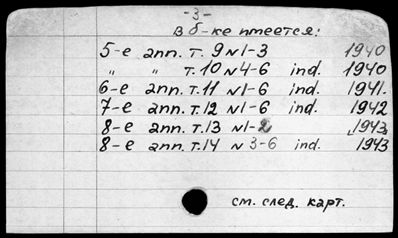 -3-
в б-ке имеется:
5-е апп. т. 9 N1-3 1940
" " т. 10 N4-6 ind. 1940
6-е апп. т. 11 N1-6 ind. 1941.
7-е апп. т. 12 N1-6 ind. 1942
8-е апп. т. 13 N1-2 1943,
8-е апп. т. 14 N 3-6 ind. 1943
см. след. карт.